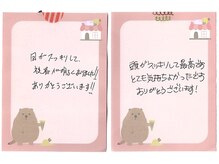 目がスッキリして、
ありがとうございます!!
頭がスッキリして最高です
とても気持ちよかったです
ありがとうございます!